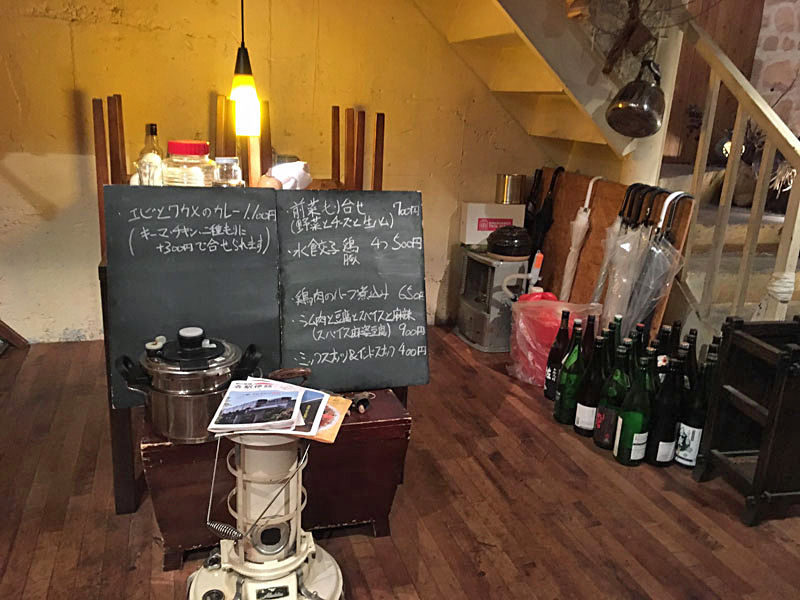 ・エビとワカメのカレー 1,100円
(キーマ、チキン、二種もりに
+300円で合せられます)
・前菜もり合せ 700円
(野菜とチーズと生ハム)
・水餃子 鶏 4つ 500円
豚
・鶏肉のハーブ煮込み 650円
・ラム肉と豆腐とスパイスと麻辣
(スパイス麻婆豆腐) 900円
・ミックスナッツ&インドスナック 400円
Aladdin